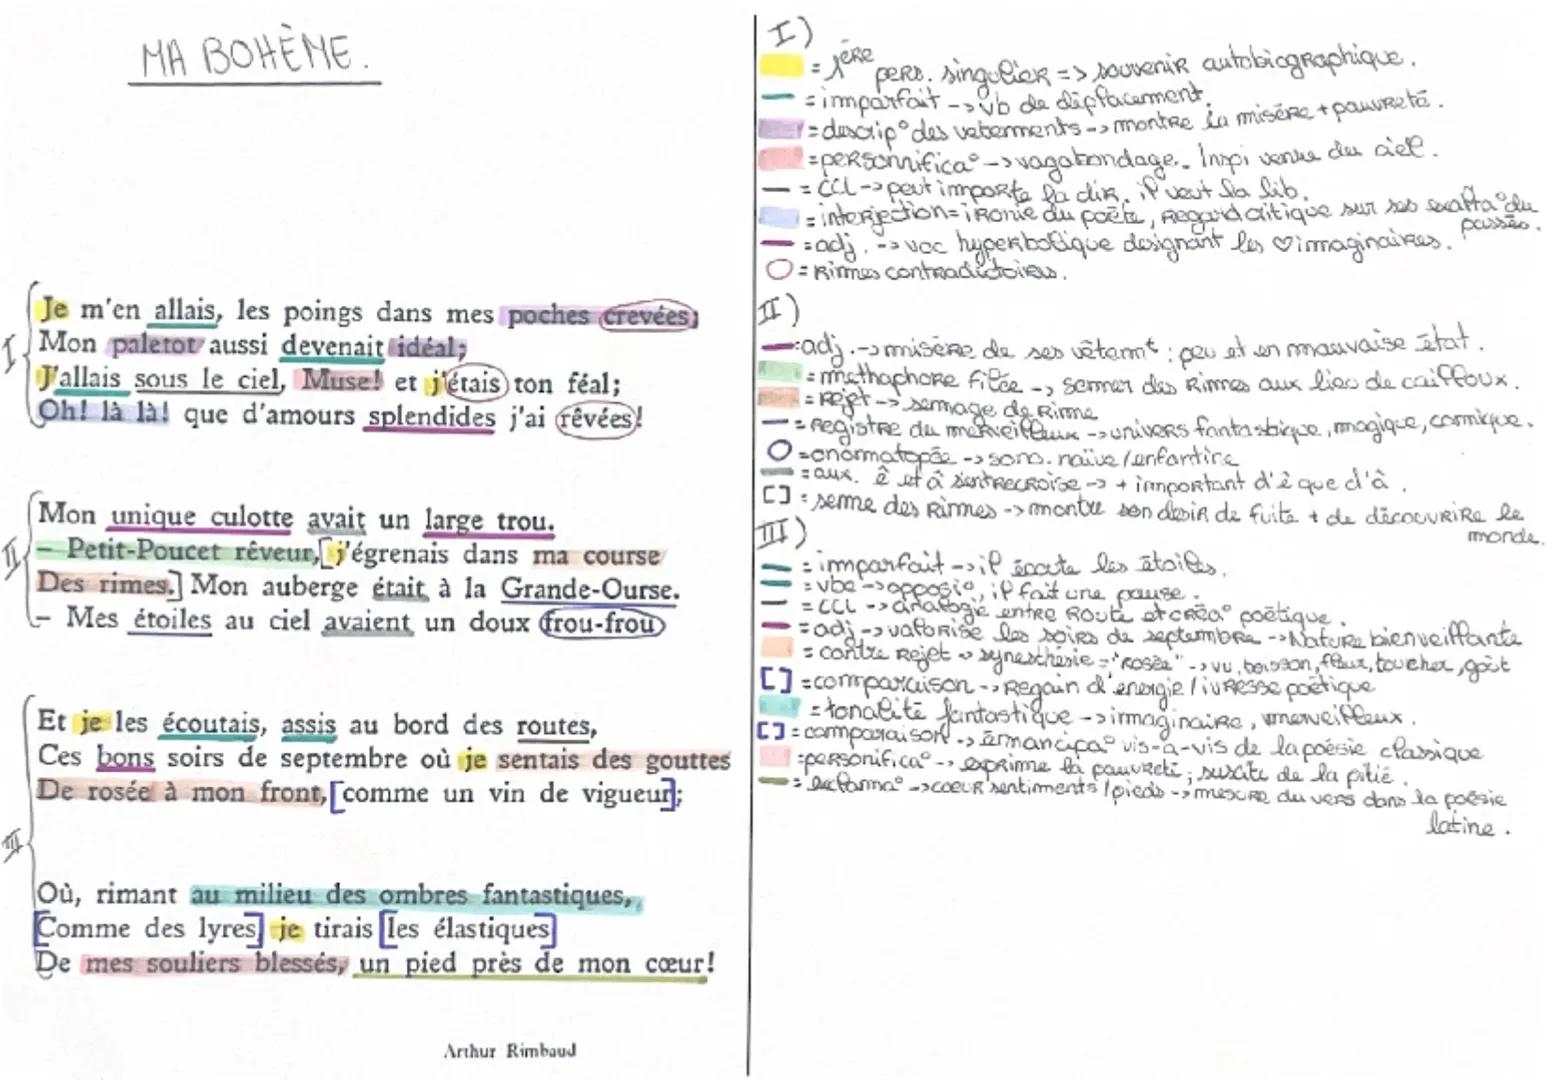 MA BOHÈME.
I
Je m'en allais, les poings dans mes poches crevées;
Mon paletot aussi devenait idéal;
J'allais sous le ciel, Muse! et j'étais ton féal;
Oh! là là! que d'amours splendides j'ai rêvées!
II
Mon unique culotte avait un large trou.
– Petit-Poucet rêveur, [j'égrenais dans ma course
Des rimes.] Mon auberge était à la Grande-Ourse.
– Mes étoiles au ciel avaient un doux frou-frou
III
Et je les écoutais, assis au bord des routes,
Ces bons soirs de septembre où je sentais des gouttes
De rosée à mon front, [comme un vin de vigueur];
Où, rimant au milieu des ombres fantastiques,
[Comme des lyres] je tirais [les élastiques]
De mes souliers blessés, un pied près de mon cœur!
Arthur Rimbaud
I)
= 1ère pers. singulier => souvenir autobiographique.
= imparfait -> vb de déplacement.
= descrip° des vetements -> montre la misère + pauvreté.
= personnifica° -> vagabondage. Inspi venue du ciel.
= CCL -> peut importe la dir, il veut la lib.
= interjection = ironie du poète, regard critique sur ses exalta° du
passés.
= adj. -> voc hyperbolique designant les ♡ imaginaires.
= Rimes contradictoires.
II)
= adj. -> misère de ses vêtemt : peu et en mauvaise état.
= methaphore filée -> semer des Rimes aux lieu de cailloux.
= rejet -> semage de Rime
= Registre du merveilleux -> univers fantastique, magique, cosmique.
= onomatopée -> sono. naïve/enfantine
= aux. ê et à s'entrecroise -> + important d'ê que d'à.
[ ] = seme des Rimes -> montre son desir de fuite + de découvrire le
monde.
III)
= imparfait -> il écoute les étoiles.
= vbe -> opposi°, il fait une pause.
= CCL -> analogie entre Route et créa° poëtique.
= adj -> valorise les soirs de septembre -> Nature bienveillante
= contre Rejet synesthésie = "rosée" -> vu, boisson, fleur, toucher, goût
[ ] = comparaison -> Regain d'energie / ivresse poëtique
= tonalité fantastique -> imaginaire, merveilleux.
[ ] = comparaison -> émancipa° vis-à-vis de la poésie classique
= personifica° -> exprime la pauvreté ; suscite de la pitié.
= exclama° -> coeur sentiments / pieds -> mesure du vers dans la poésie
latine.